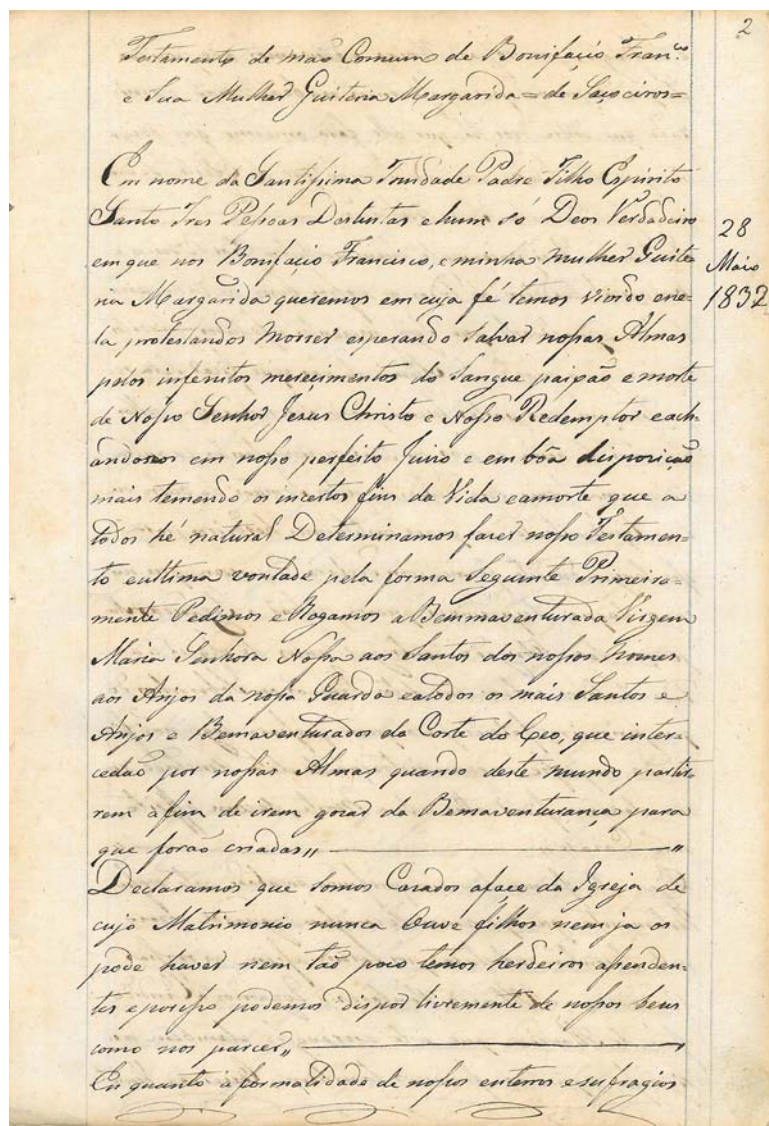 2
Testamento de mão Comum de Bonifacio Fran.co
e Sua Mulher Guiteria Margarida = de
Em nome da Santissima Trindade Padre Filho Espirito
Santo Tres Pessoas Destintas e hum só Deos Verdadeiro
em que nos Bonifacio Francisco, e minha mulher Guite-
ria Margarida queremos em cuja fé temos vivido ene-
la protestandos morrer esperando Salvar nossas Almas
pelos infenitos merecimentos do Sangue paixão e morte
de Nosso Senhor Jezus Christo e Nosso Redemptor e ach-
andonos em nosso perfeito Juizo e em bôa disposição
mais temendo os incertos fins da Vida eamorte que a
todos hé natural Determinamos fazer nosso Testamen-
to eultima vontade pela forma Seguinte Primeira-
mente Pedimos e Rogamos a Bemmaventurada Virgem
Maria Senhora Nossa aos Santos dos nossos nomes
aos Anjos da nossa Guarda eatodos os mais Santos e
Anjos e Bemaventurados da Corte do Ceo, que inter-
cedão por nossas Almas quando deste mundo partir-
rem a fim de irem gozar da Bemaventurança para
que forão criadas,, ,,
Declaramos que somos Cazados aface da Igreja de
cujo Matrimonio nunca Ouve filhos nem ja os
pode haver nem tão poco temos herdeiros assenden-
tes eporisso podemos dispor livremente de nossos bens
como nos parcer,,
En quanto a formalidade de nossos enterros esufragios
28
Maio
1832